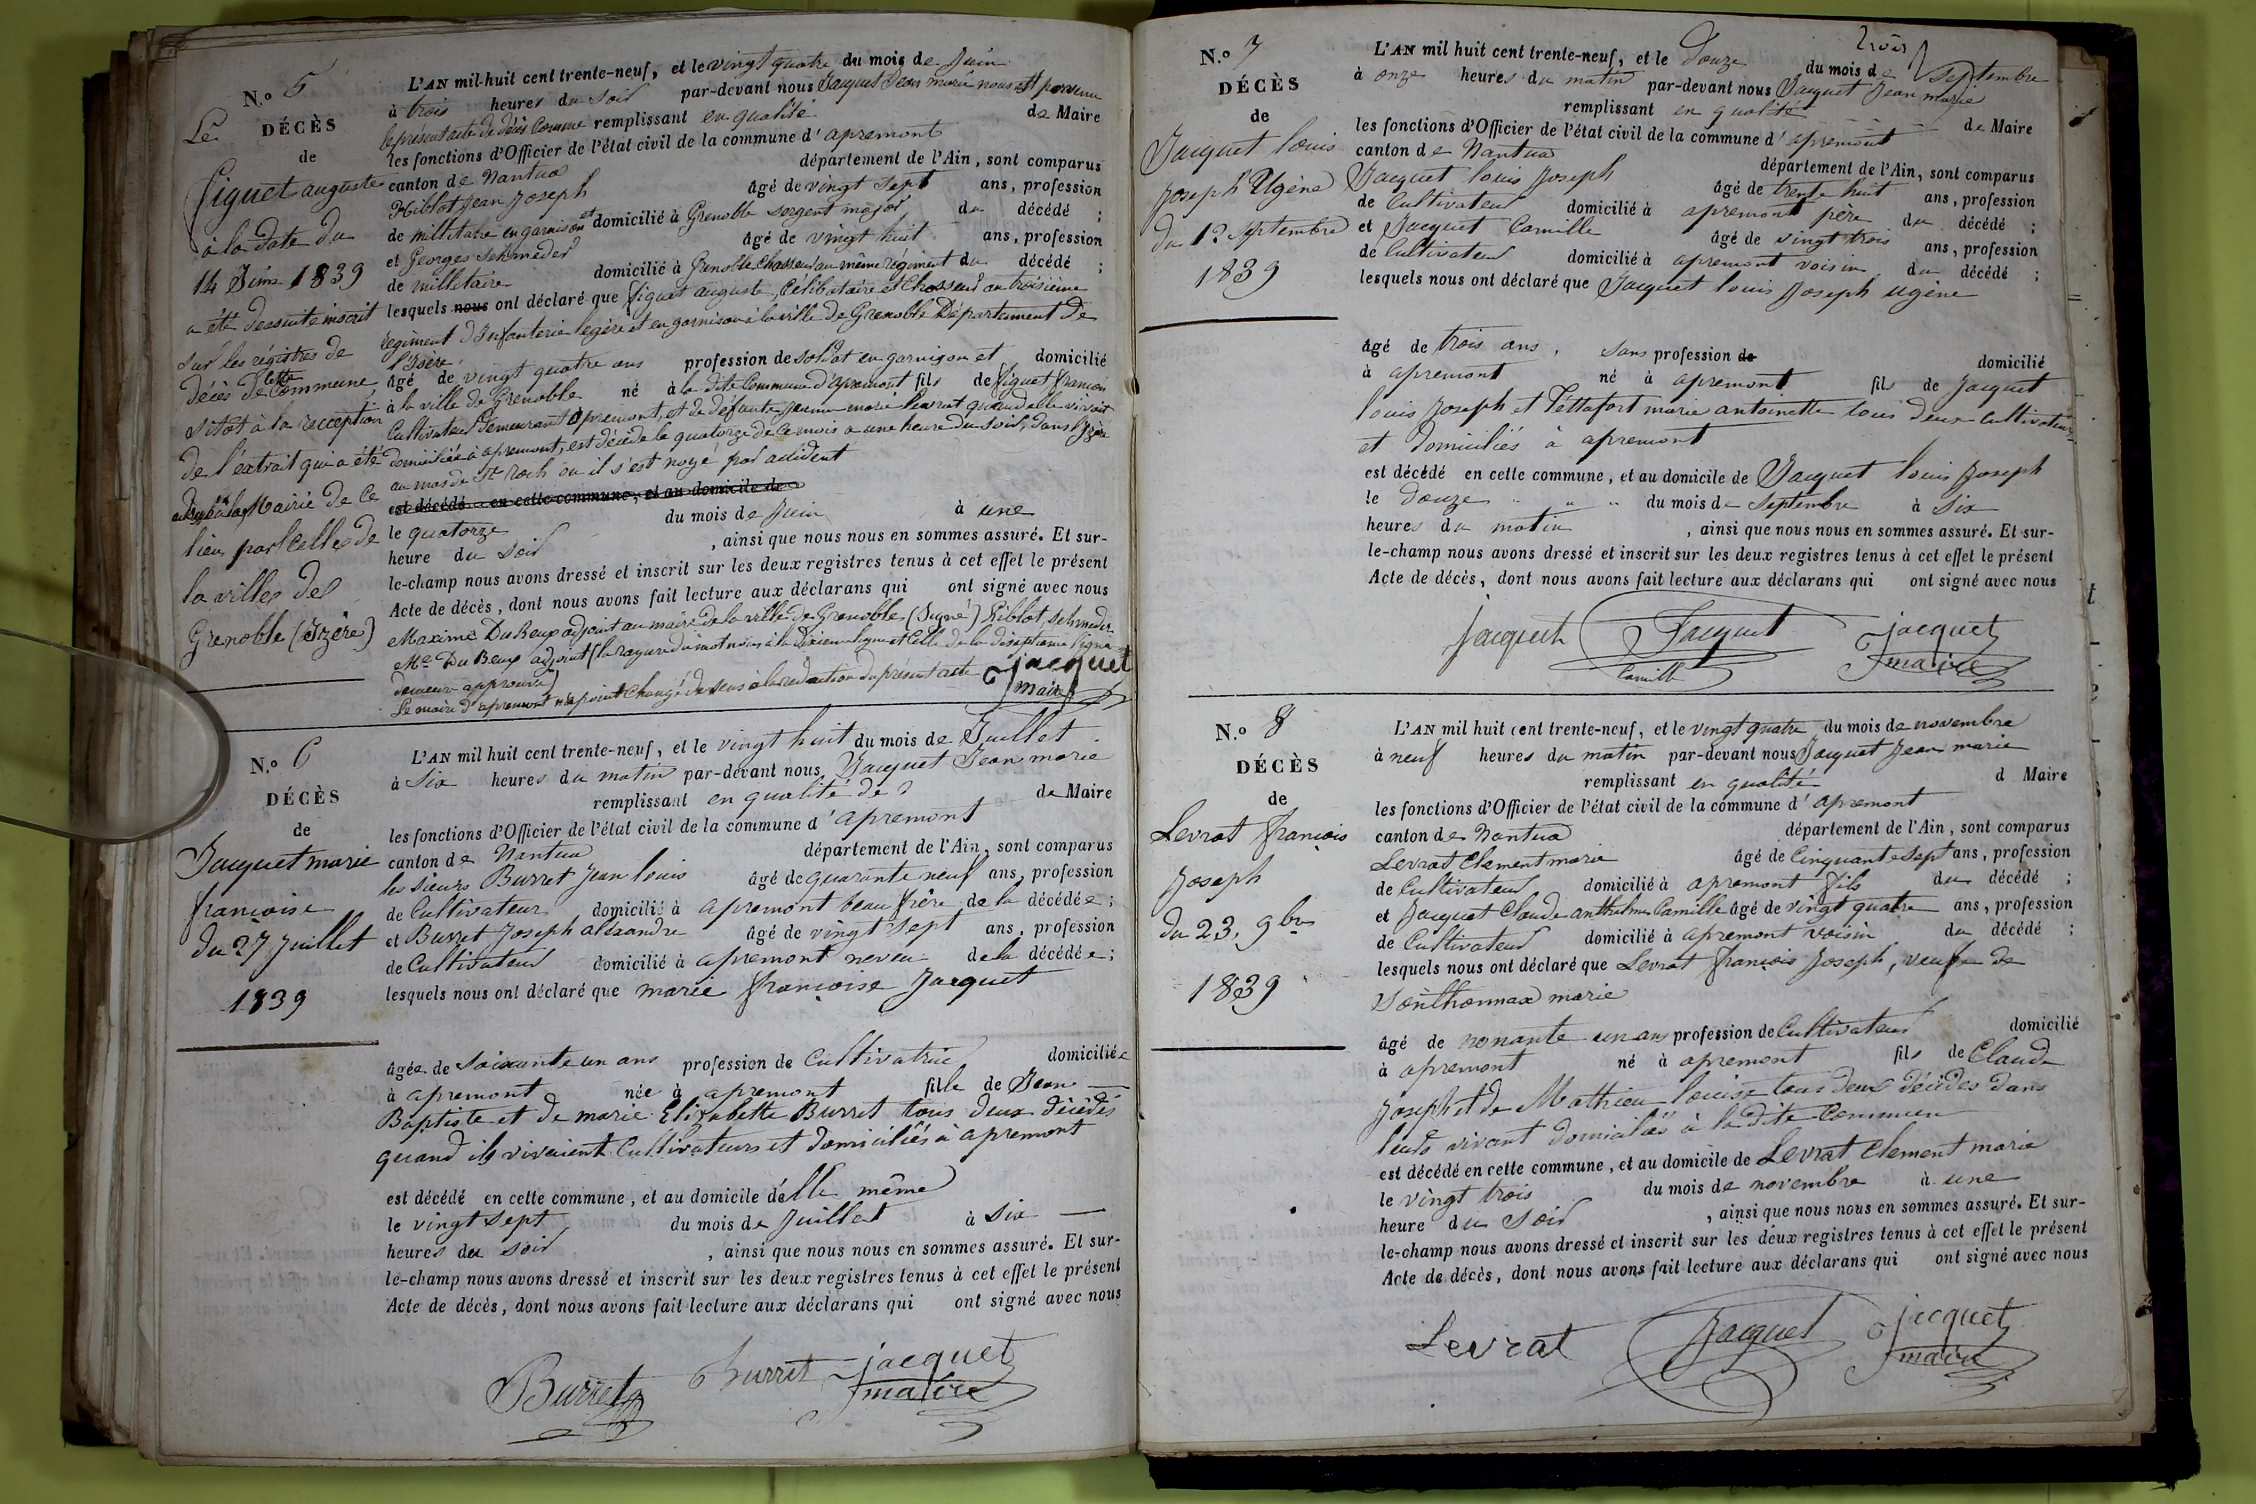 N.° 5
DÉCÈS
Le
de
figuet auguste
à la date du
14 Juin 1839
a été de suite inscrit
sur les régistres de
décès de cette Commune
sitot à la reception
de l'extrait qui a été
Mairie de ce
lieu par Celle de
la ville de
Grenoble (Izère)
L'AN mil-huit cent trente-neuf, et le vingt quatre du mois de Juin
à trois heures du soir par-devant nous Jacquet Jean marie nous est parvenu
le présent acte de décès Comme remplissant en qualité de Maire
les fonctions d'Officier de l'état civil de la commune d'apremont
canton de Nantua département de l'Ain, sont comparus
Hiblot Jean Joseph âgé de vingt sept ans, profession
de millitaire en garnison et domicilié à Grenoble sergent major du décédé ;
et Georges Schmeder âgé de vingt huit ans, profession
de millitaire domicilié à Grenoble Chasseur au même régiment du décédé ;
lesquels nous ont déclaré que figuet auguste, Célibataire et Chasseur au troisieme
regiment d'Infanterie legère et en garnison à la ville de Grenoble Département de
l'Isère
âgé de vingt quatre ans profession de soldat en garnison et domicilié
à la ville de Grenoble né à la dite Commune d'apremont fils de figuet francois
Cultivateur demeurant à apremont, et de défunte Jeanne marie levrat quand elle vivait
domiciliée à apremont, est décédé le quatorze de ce mois a une heure du soir, dans l'Izère
au mas de St Roch ou il s'est noyé par accident
est décédé en cette commune, et au domicile de
le quatorze du mois de Juin à une
heure du soir , ainsi que nous nous en sommes assuré. Et sur-
le-champ nous avons dressé et inscrit sur les deux registres tenus à cet effet le présent
Acte de décès, dont nous avons fait lecture aux déclarans qui ont signé avec nous
Maxime Du Beux adjoint au maire de la ville de Grenoble (Signé) Hiblot, Schmeder
Me Du Beux adjoint (la rayure du mot nous à la dixieme ligne et Celle de la dixseptieme ligne
demeure approuvée)
Le maire d'apremont n'a point Changé de sens à la redaction du présent acte jacquet
maire
N.° 6
DÉCÈS
de
Jacquet marie
françoise
du 27 Juillet
1839
L'AN mil huit cent trente-neuf, et le vingt huit du mois de Juillet
à Six heures du matin par-devant nous Jacquet Jean marie
remplissant en qualité de de Maire
les fonctions d'Officier de l'état civil de la commune d'apremont
canton de Nantua département de l'Ain, sont comparus
les sieurs Burret Jean louis âgé de quarante neuf ans, profession
de Cultivateur domicilié à apremont beau frère de la décédée ;
et Burret Joseph alexandre âgé de vingt Sept ans, profession
de Cultivateur domicilié à apremont neveu de la décédée ;
lesquels nous ont déclaré que marie françoise Jacquet
âgée de soixante un ans profession de Cultivatrice domiciliée
à apremont née à apremont fille de Jean
Baptiste et de marie Elizabette Burret tous deux décédés
quand ils vivaient Cultivateurs et domiciliés à apremont
est décédé en cette commune, et au domicile d'elle même
le vingt Sept du mois de Juillet à Six
heures du soir , ainsi que nous nous en sommes assuré. Et sur-
le-champ nous avons dressé et inscrit sur les deux registres tenus à cet effet le présent
Acte de décès, dont nous avons fait lecture aux déclarans qui ont signé avec nous
Burret Burret jacquet
maire
N.° 7
DÉCÈS
de
Jacquet louis
Joseph Ugène
du 12 Septembre
1839
trois
L'AN mil huit cent trente-neuf, et le Douze du mois de Septembre
à onze heures du matin par-devant nous Jacquet Jean marie
remplissant en qualité de Maire
les fonctions d'Officier de l'état civil de la commune d'apremont
canton de Nantua département de l'Ain, sont comparus
Jacquet louis Joseph âgé de trente huit ans, profession
de Cultivateur domicilié à apremont père du décédé ;
et Jacquet Camille âgé de vingt trois ans, profession
de Cultivateur domicilié à apremont voisin du décédé ;
lesquels nous ont déclaré que Jacquet louis Joseph ugène
âgé de trois ans, sans profession de domicilié
à apremont né à apremont fils de Jacquet
louis Joseph et Tettafort marie antoinette tous deux cultivateurs
et domiciliés à apremont
est décédé en cette commune, et au domicile de Jacquet louis Joseph
le douze du mois de Septembre à Six
heures du matin , ainsi que nous nous en sommes assuré. Et sur-
le-champ nous avons dressé et inscrit sur les deux registres tenus à cet effet le présent
Acte de décès, dont nous avons fait lecture aux déclarans qui ont signé avec nous
Jacquet Jacquet jacquet
Camille maire
N.° 8
DÉCÈS
de
Levrat françois
Joseph
du 23. 9bre
1839
L'AN mil huit cent trente-neuf, et le vingt quatre du mois de novembre
à neuf heures du matin par-devant nous Jacquet Jean marie
remplissant en qualité d Maire
les fonctions d'Officier de l'état civil de la commune d'apremont
canton de Nantua département de l'Ain, sont comparus
Levrat Clement marie âgé de Cinquante Sept ans, profession
de Cultivateur domicilié à apremont fils du décédé ;
et Jacquet Claude anthelme Camille âgé de vingt quatre ans, profession
de Cultivateur domicilié à apremont voisin du décédé ;
lesquels nous ont déclaré que Levrat françois Joseph, veuf de
Sonthonnax marie
âgé de nonante un ans profession de Cultivateur domicilié
à apremont né à apremont fils de Claude
Joseph et de Mathieu louise tous deux décédés dans
leurs vivant domiciliés à la dite Commune
est décédé en cette commune, et au domicile de Levrat Clement marie
le vingt trois du mois de novembre à une
heure du Soir , ainsi que nous nous en sommes assuré. Et sur-
le-champ nous avons dressé et inscrit sur les deux registres tenus à cet effet le présent
Acte de décès, dont nous avons fait lecture aux déclarans qui ont signé avec nous
Levrat Jacquet jacquet
maire